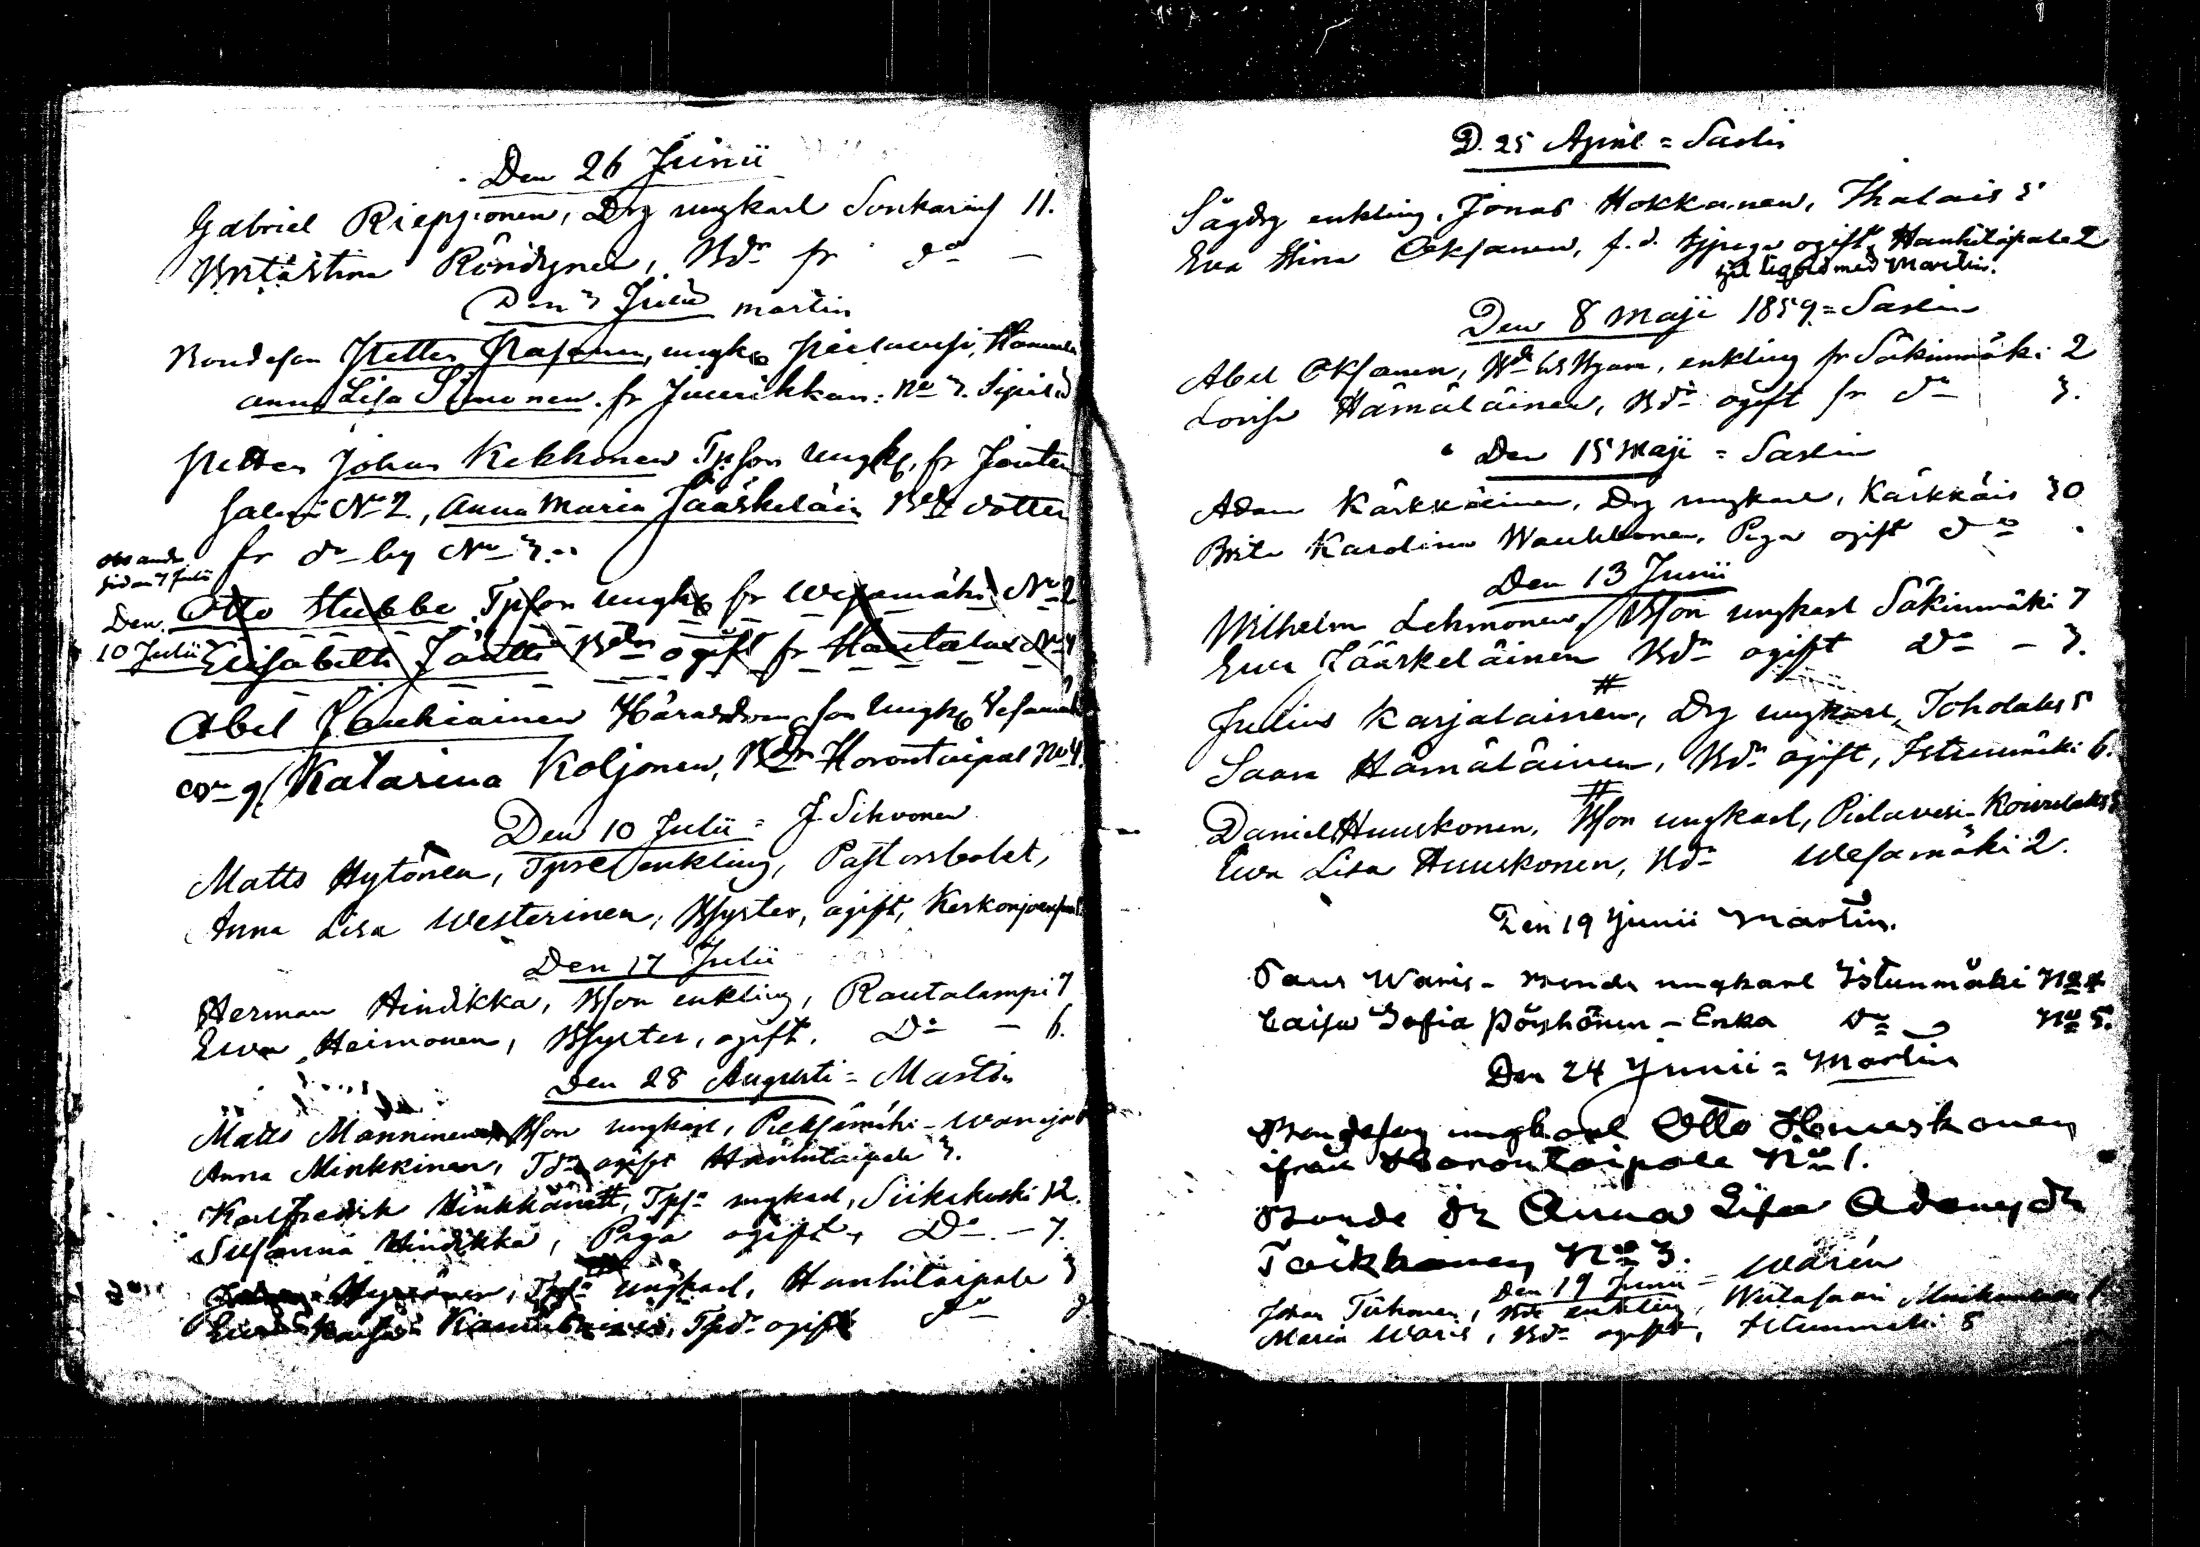 Den 26 Junii
Gabriel Riepponen, Drg ungkarl Sonkarins 11.
Brita Stina Röndynen, Bdr fr do –
Den 3 Julii Martin
Bondeson Petter Pasanen, ungk Pielavesi,
Anna Lisa Simonen fr Juurikkam: No 3.
Petter Johan Kekkonen Tpson ungk, fr Jouten
salmi No 2, Anna Maria Jääskeläin Bde dotter
fr do by No 3.
Otto Stubbe Tpson ungk fr Wesamäki No 2
Den
10 Julii Elisabeth Jäntti Bdr ogift fr Hautalax No 4
Abel Jauhiainen Häradsdom son ungk Vesamäk
Katarina Koljonen, Bdr Horontaipal No 4.
Den 10 Julii = J. Sihvonen
Matts Hytönen, Tpre enkling, Pastorsbolet,
Anna Lisa Westerinen, Bsyster, ogift, Kerkonjoensuu
Den 17 Julii
Herman Hindikka, Bson enkling, Rautalampi 7
Ewa Heimonen, Bsyster, ogift. Do – 6.
Den 28 Augusti = Martin
Matts Manninen Bson ungkarl, Pieksämäki –
Anna Minkkinen, Tdr ogift Hankitaipale 3.
Karl Fredrik Hinkkanen, Tpsn ungkarl, Siikakoski 12.
Susanna Hindikka, Piga ogift, Do – 7.
Hytönen, Tpsn ungkarl, Hankitaipale 3
Ewa Kaisa Tpdr ogift do
D. 25 April = Sastin
Sågdrg enkling, Jonas Hokkanen, Thalais 5
Eva Stina Oksanen, f.d. Tppiga ogift Hankitaipale 2
med Martin.
Den 8 Maji 1859 = Sastin
Abel Oksanen, enkling fr Säkinmäki 2
Lovisa Hämäläinen, Bdr ogift fr do 3.
Den 15 Maji = Sastin
Adam Kärkkäinen, Drg ungkarl, Kärkkäis 30
Brita Karolina Waukkonen, Piga ogift do
Den 13 Junii
Wilhelm Lehmonen, Bson ungkarl Säkinmäki 7
Ewa Jääskeläinen Bdr ogift do – 3.
#
Julius Karjalainen, Drg ungkarl, Toholaks 5
Saara Hämäläinen, Bdr ogift, Istunmäki 6.
#
Daniel Huuskonen, Bson ungkarl, Pielavesi – Koivulaks
Ewa Lisa Huuskonen, Bdr Wesamäki 2.
Den 19 Junii Martin.
Paul Waris – Bonde ungkarl Istunmäki No 4
Caisa Sofia Pöyhönen – Enka do No 5.
Den 24 Junii = Martin
Bondeson ungkarl Otto Huuskonen
ifrån Horontaipale No 1.
Bonde dr Anna Lisa Adamsdr
No 3.
Den 19 Junii = Warén
Johan Tiihonen, Bde enkling, Wiitasaari
Maria Waris, Bdr ogift, Istunmäki 5